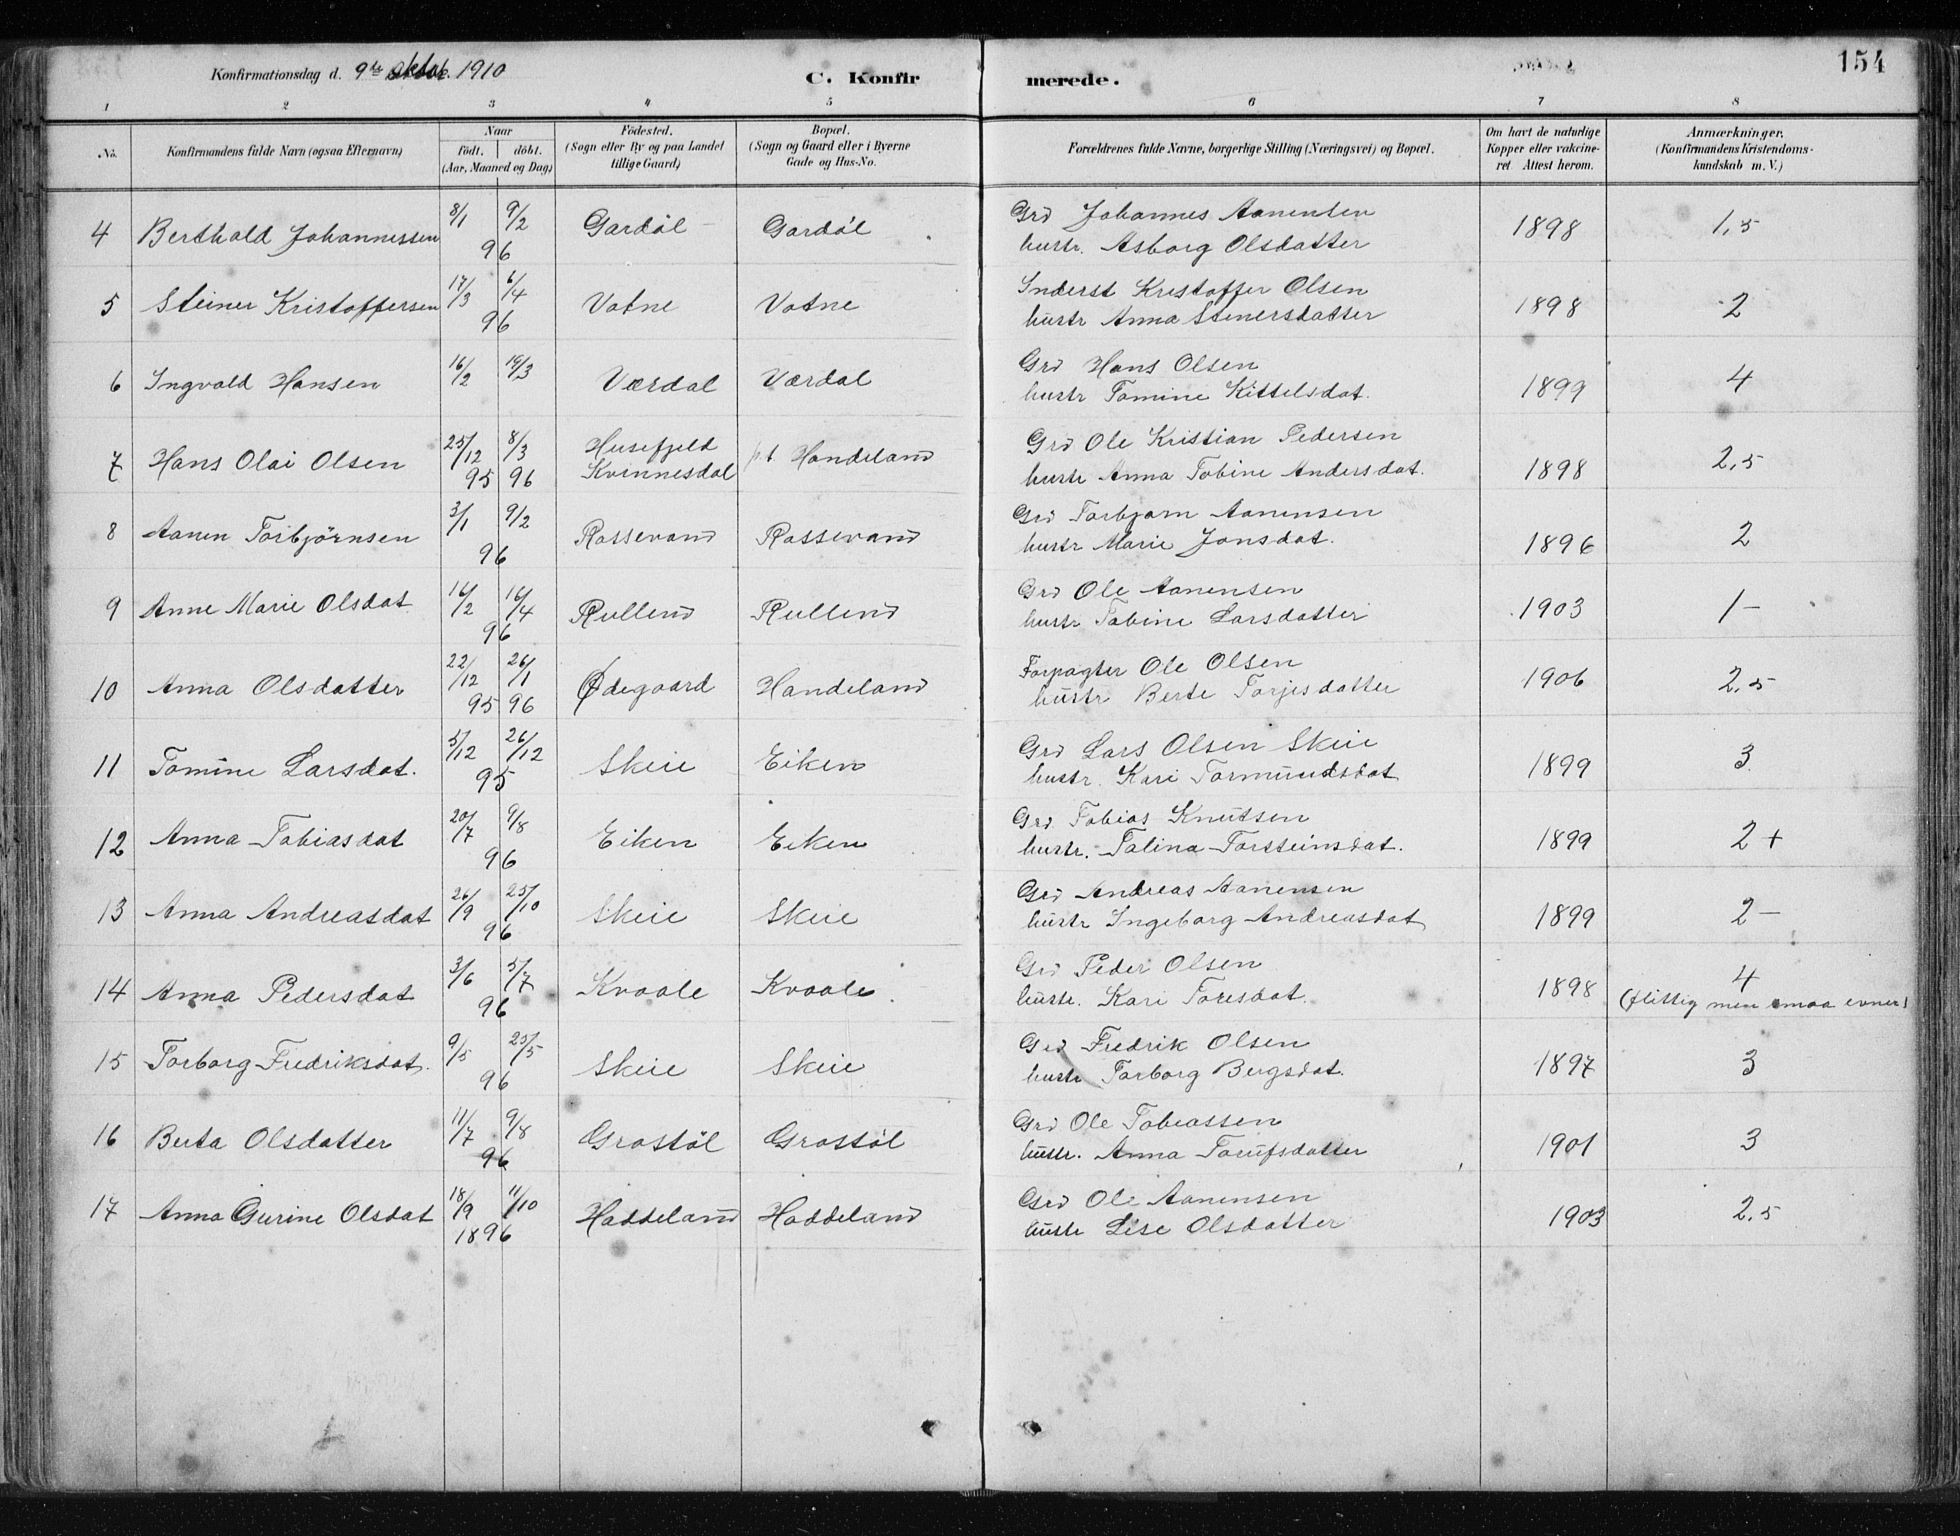 154
Konfirmationsdag d. 9de oktob. 1910
C. Konfirmerede.
1 2 3 4 5 6 7 8
No.
Konfirmandens fulde Navn (ogsaa Efternavn)
Naar
födt. döbt.
(Aar, Maaned og Dag)
Födested.
(Sogn eller By og paa Landet
tillige Gaard)
Bopæl.
(Sogn og Gaard eller i Byerne
Gade og Hus-No.
Forældrenes fulde Navne, borgerlige Stilling (Næringsvei) og Bopæl.
Om havt de naturlige
Kopper eller vakcine-
ret. Attest herom.
Anmærkninger.
(Konfirmandens Kristendoms-
kundskab m. V.)
4 Berthold Johannessen 8/1 9/2 96 Gardöl Gardöl Grd Johannes Aanensen 1898 1,5
hustr. Asborg Olsdatter
5 Steiner Kristoffersen 17/3 6/4 96 Votne Votne Inderst Kristoffer Olsen 1898 2
hustr Anna Stenersdatter
6 Ingvald Hansen 16/2 19/3 Værdal Værdal Grd Hans Olsen 1899 4
hustr Tomine Kittelsdat.
7 Hans Olai Olsen 25/12 95 8/3 96 Husefjeld Kvinnesdal p.t Handeland Grd Ole Kristian Pedersen 1898 2,5
hustr Anna Tobine Andersdat.
8 Aanen Torbjörnsen 3/1 9/2 96 Rossevand Rossevand Grd Torbjorn Aanensen 1896 2
hustr Marie Jonsdat.
9 Anne Marie Olsdat 16/2 16/4 96 Rullend Rullend Grd Ole Aanensen 1903 1-
hustr Tobine Larsdatter
10 Anna Olsdatter 22/12 95 26/1 96 Ødegaard Handeland Forpagter Ole Olsen 1906 2,5
hustr Berte Torjesdatter
11 Tomine Larsdat. 5/12 26/12 95 Skeie Eiken Grd Lars Olsen Skeie 1899 3
hustr. Kari Tormundsdat
12 Anna Tobiasdat 20/7 9/8 96 Eiken Eiken Grd. Tobias Knutsen 1899 2+
hustr. Talina Torsteinsdat.
13 Anna Andreasdat 26/9 25/10 96 Skeie Skeie Grd Andreas Aanensen 1899 2-
hustr Ingeborg Andreasdat
14 Anna Pedersdat 3/6 5/7 96 Kvaale Kvaale Grd Peder Olsen 1898 4
hustr. Kari Toresdat. (flittig men smaa evner)
15 Torborg Fredriksdat. 9/5 25/5 96 Skeie Skeie Grd Fredrik Olsen 1897 3
hustr Torborg Bergsdat.
16 Berta Olsdatter 11/7 9/8 96 Grostöl Grostöl Grd Ole Tobiassen 1901 3
hustr. Anna Torufsdatter
17 Anna Gurine Olsdat 18/9 11/10 1896 Haddeland Haddeland Grd Ole Aanensen 1903 2,5
hustr Lise Olsdatter